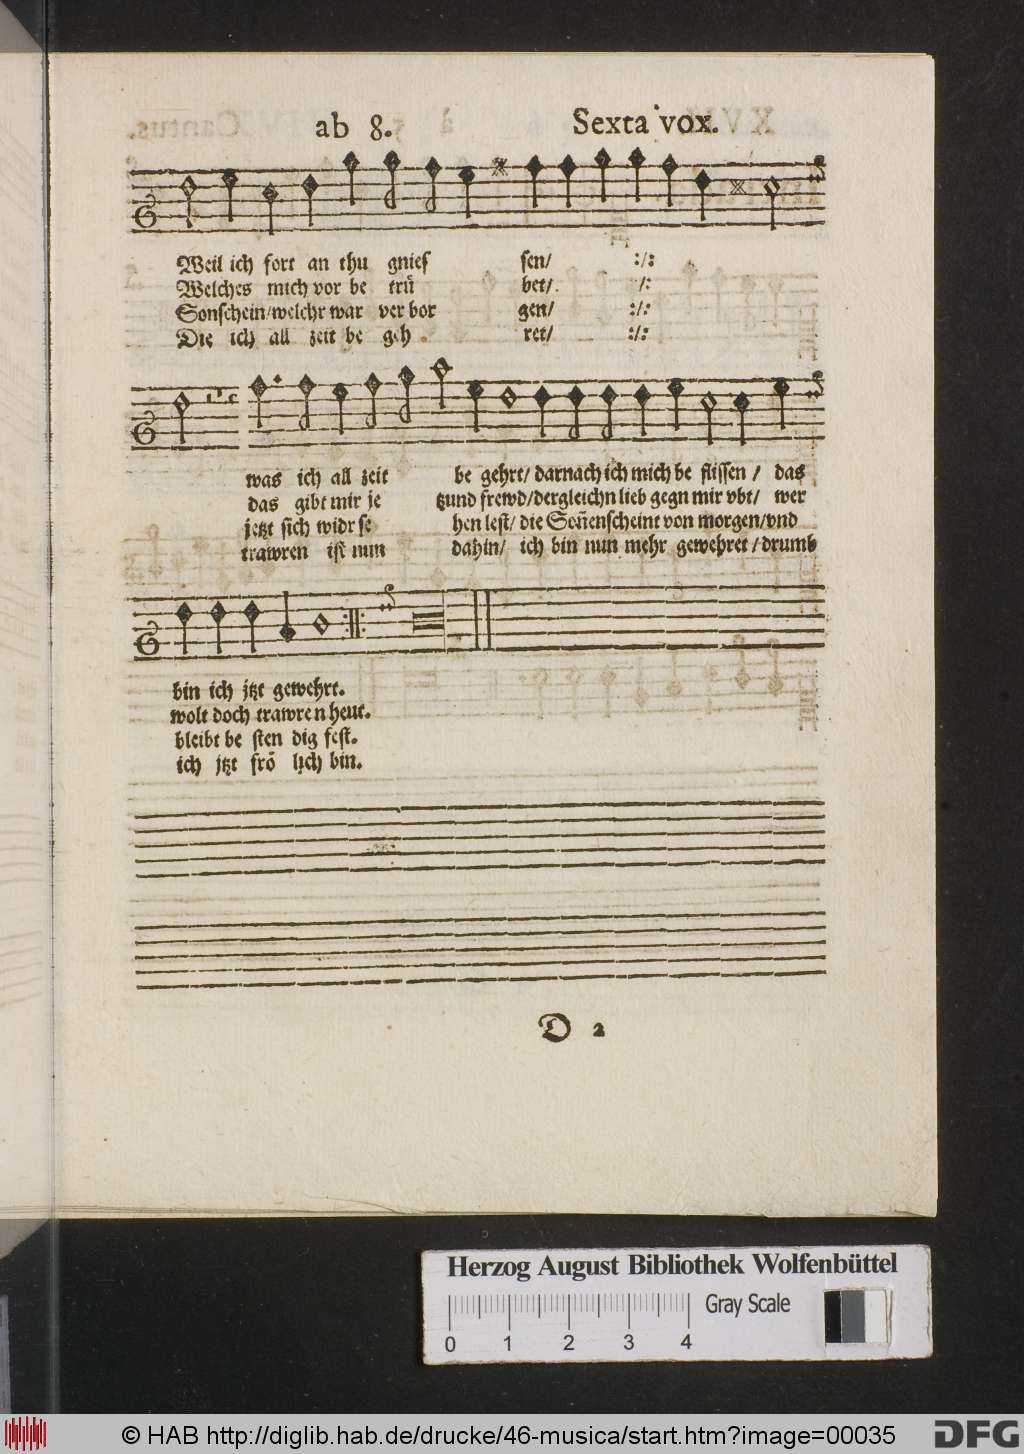 ab 8. Sexta vox.
Weil ich fort an thu gnies sen/ :/:
Welches mich vor be trü bet/. /:
Sonschein/welchr war ver bor gen/ :/:
Die ich all zeit be geh ret/ :/:
was ich all zeit be gehrt/ darnach ich mich be flissen / das
das gibt mir je tzund frewd/dergleichn lieb gegn mir vbt/ wer
jetzt sich widr se hen lest/ die Soñenscheint von morgen/vnd
trawren ist nun dahin/ ich bin nun mehr gewehret /drumb
bin ich jtzt gewehrt.
wolt doch trawren heut.
bleibt be sten dig fest.
ich jtzt frö lich bin.
D 2
Herzog August Bibliothek Wolfenbüttel
Gray Scale
0 1 2 3 4
© HAB http://diglib.hab.de/drucke/46-musica/start.htm?image=00035
DFG